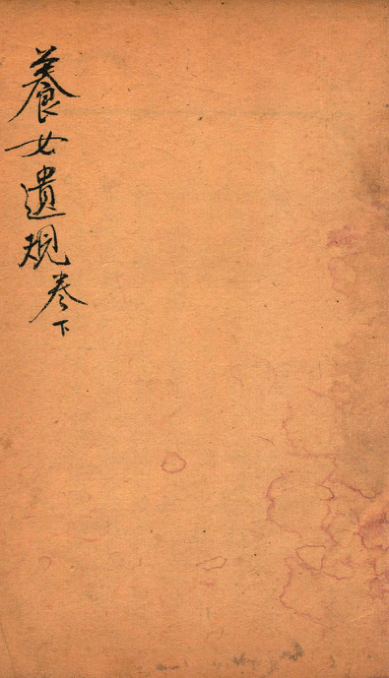 養女遺規卷下